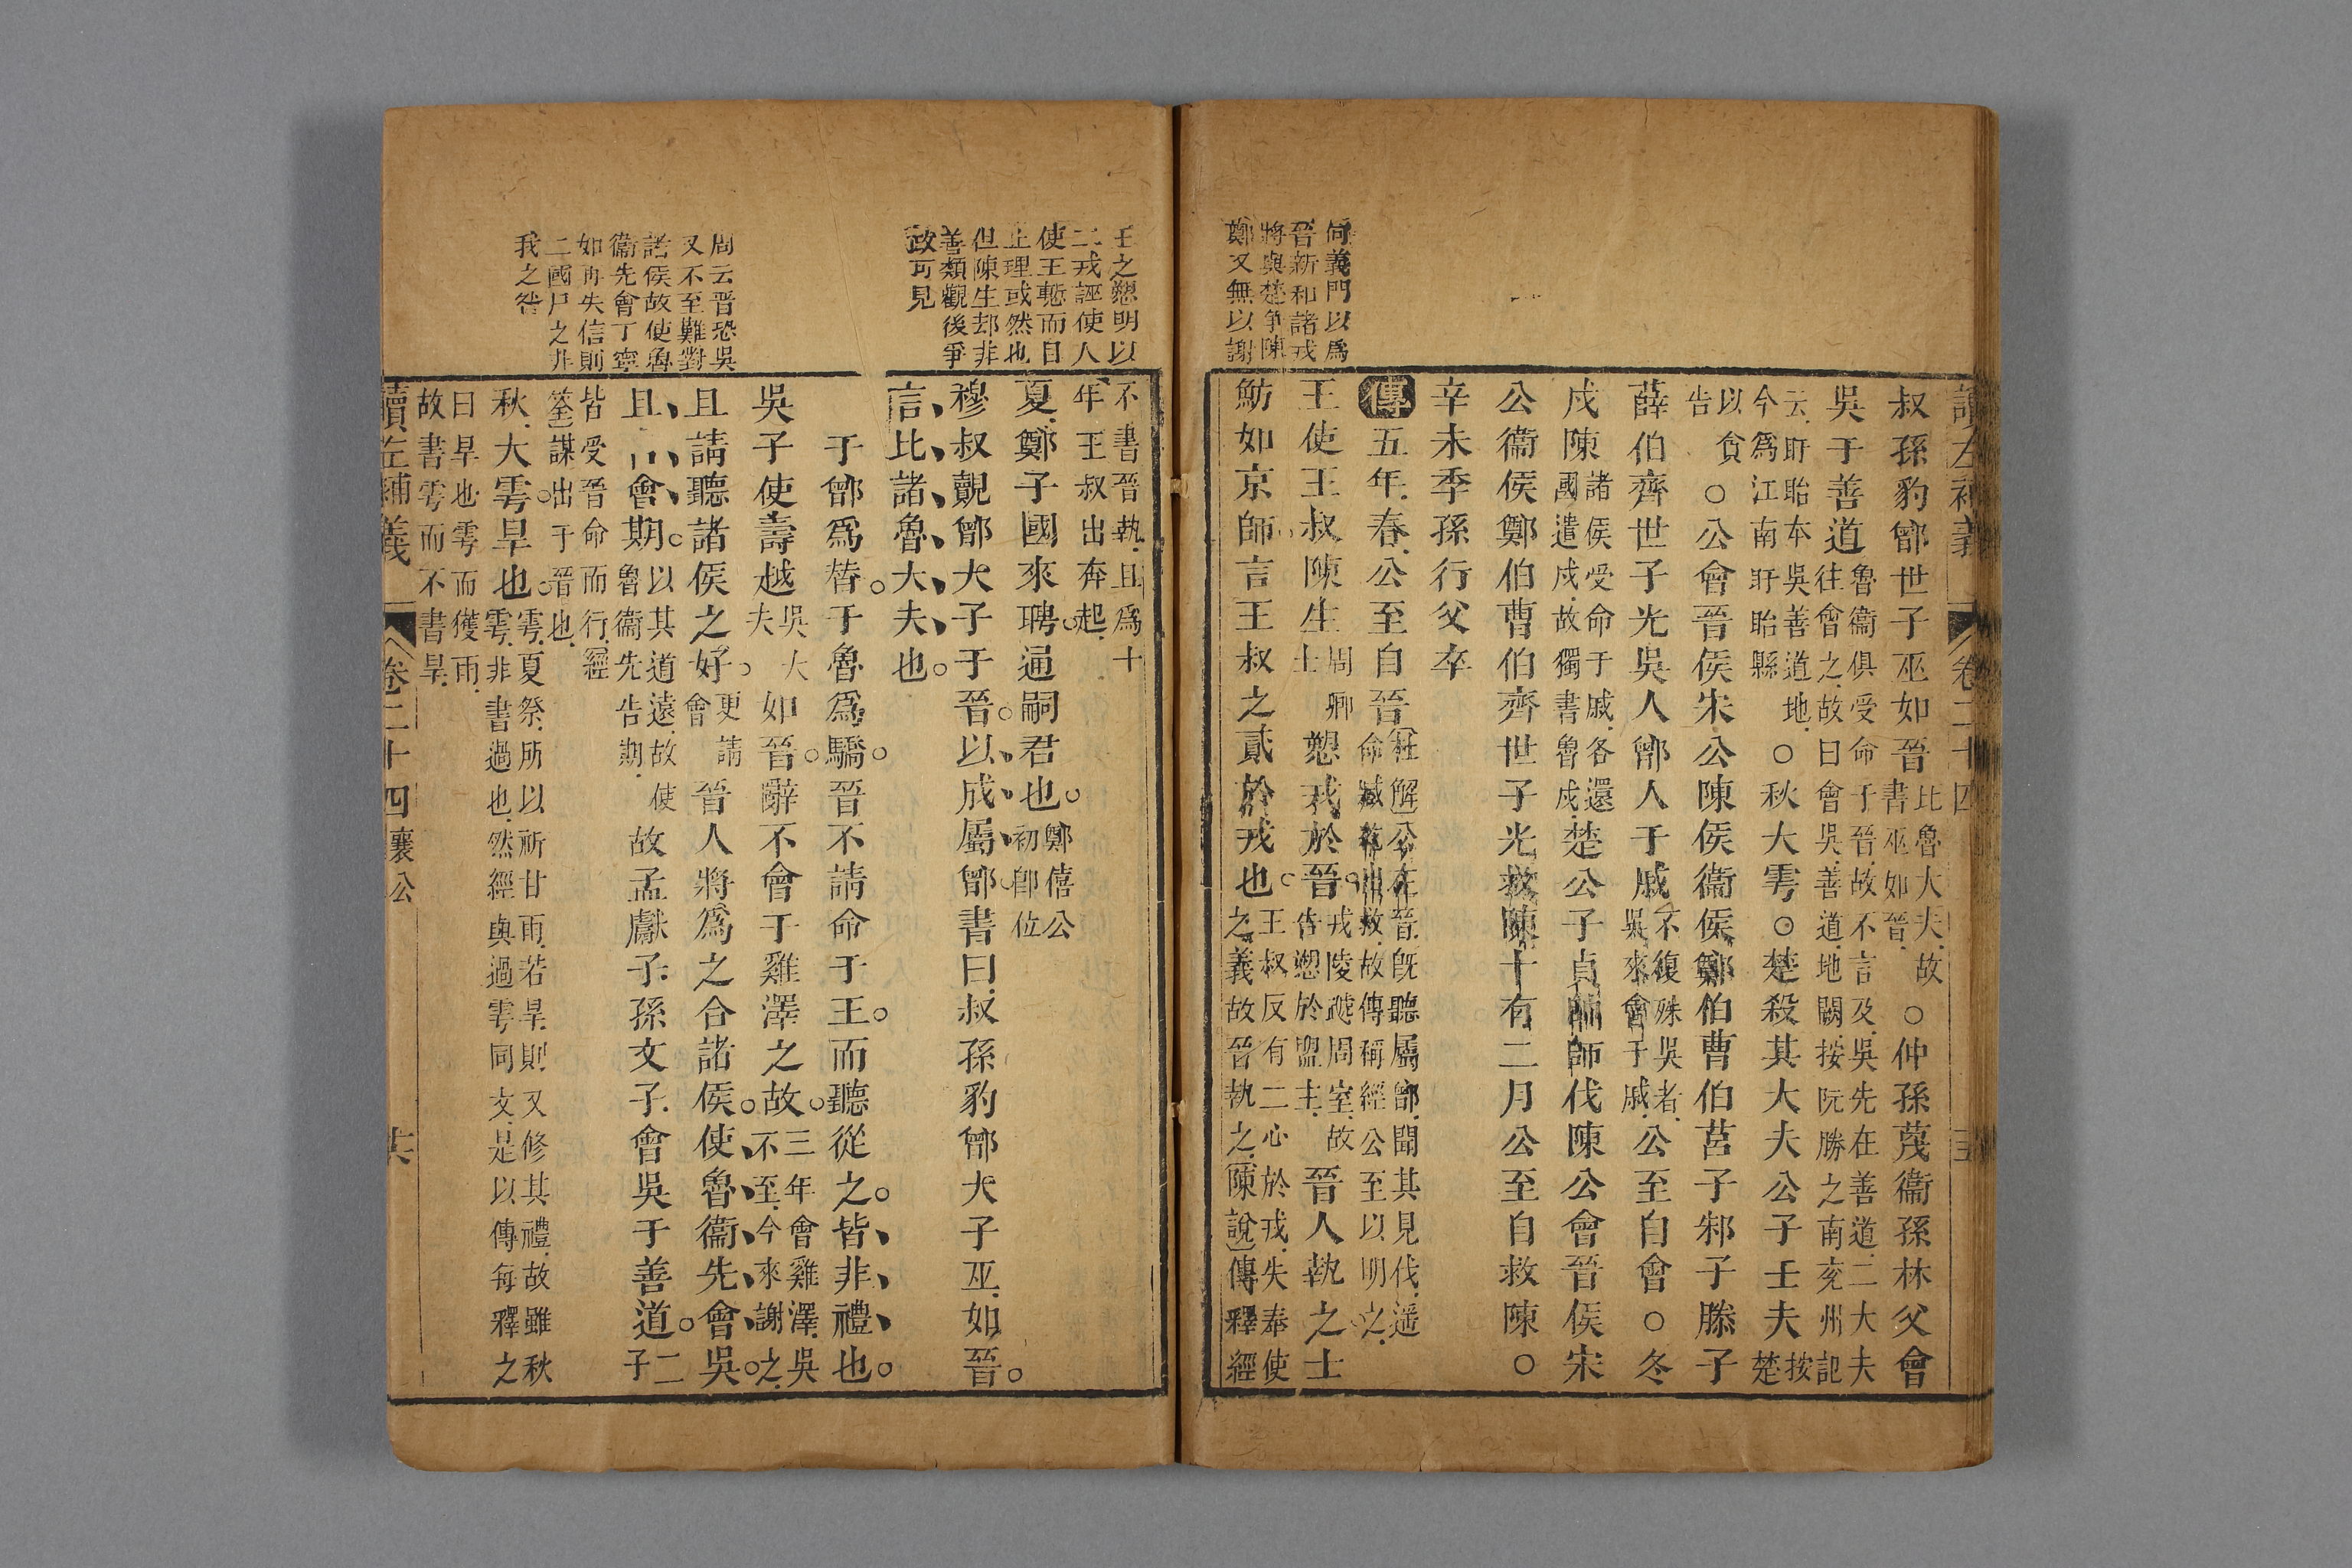 讀左補義 卷二十四
叔孫豹鄫世子巫如晉比魯大夫故書巫如晉○仲孫蔑衞孫林父會
吳于善道魯衞俱受命于晉故不言及吳先在善道二大夫往會之故曰會吳善道地闕按阮勝之南兗州記
云盱眙本吳善道地今爲江南盱眙縣○秋大雩○楚殺其大夫公子壬夫按楚
以貪告○公會晉侯宋公陳侯衞侯鄭伯曹伯莒子邾子滕子
薛伯齊世子光吳人鄫人于戚不復殊吳者吳來會于戚公至自會○冬
戍陳諸侯受命于戚各還國遣戍故獨書魯戍楚公子貞帥師伐陳公會晉侯宋
公衞侯鄭伯曹伯齊世子光救陳十有二月公至自救陳○
辛未季孫行父卒
傳五年春公至自晉杜解公在晉旣聽屬鄫聞其見伐遥命臧紇出救故傳稱經公至以明之
王使王叔陳生周卿士愬戎於晉戎陵虣周室故告愬於盟主晉人執之士
魴如京師言王叔之貳於戎也王叔反有二心於戎失奉使之義故晉執之陳說傳釋經
何義門以爲
晉新和諸戎
將與楚爭陳
鄭又無以謝
王之愬明以
二戎誣使人
使王慙而自
止理或然也
但陳生却非
善類觀後爭
政可見
不書晉執且爲十年王叔出奔起
夏鄭子國來聘通嗣君也鄭僖公初卽位
穆叔覿鄫大子于晉以成屬鄫書曰叔孫豹鄫大子巫如晉
言比諸魯大夫也
于鄫爲替于魯爲驕晉不請命于王而聽從之皆非禮也
吳子使壽越吳大夫如晉辭不會于雞澤之故三年會雞澤吳不至今來謝之
且請聽諸侯之好更請會晉人將爲之合諸侯使魯衞先會吳
且吿會期以其道遠故使魯衞先告期故孟獻子孫文子會吳于善道二子
皆受晉命而行經筌謀出于晉也
秋大雩旱也雩夏祭所以祈甘雨若旱則又修其禮故雖秋雩非書過也然經與過雩同文是以傳每釋之
曰旱也雩而獲雨故書雩而不書旱
周云晉恐吳
又不至難對
諸侯故使魯
衞先會丁寧
如再失信則
二國尸之非
我之咎
讀左補義 卷二十四 襄公